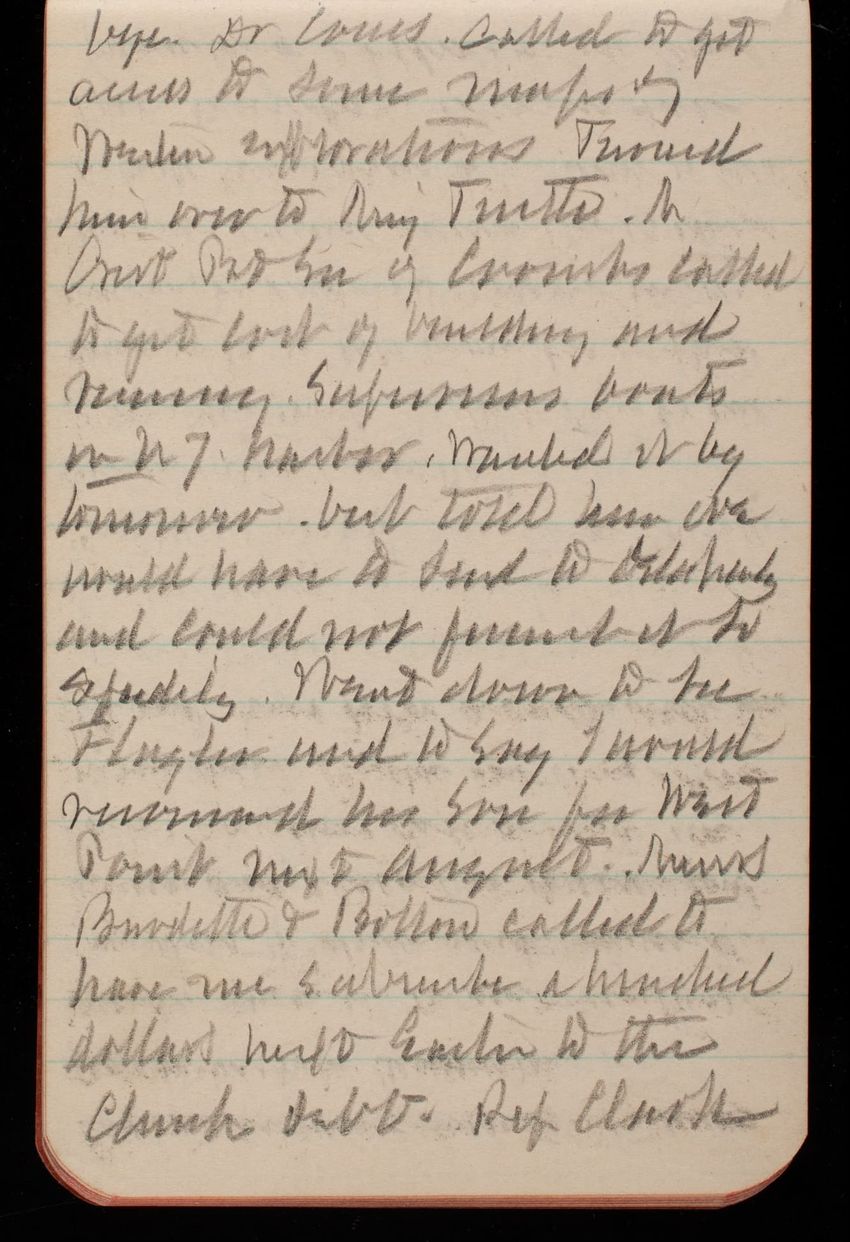 Dr Coues. called to get
access to some maps of
Western explorations Turned
him over to Maj Tuttle.
of Coombs called
to get cost of building and
running Supervisors boats
in N Y. harbor. Wanted it by
tomorrow. but told him we
would have to send to
and could not furnish it so
speedily. Went down to see
Flagler and to say I would
recommend his son for West
Point next August.
Burdette & Bolton called to
have me subscribe a hundred
dollars next Easter to the
Church debt. Rep Clark